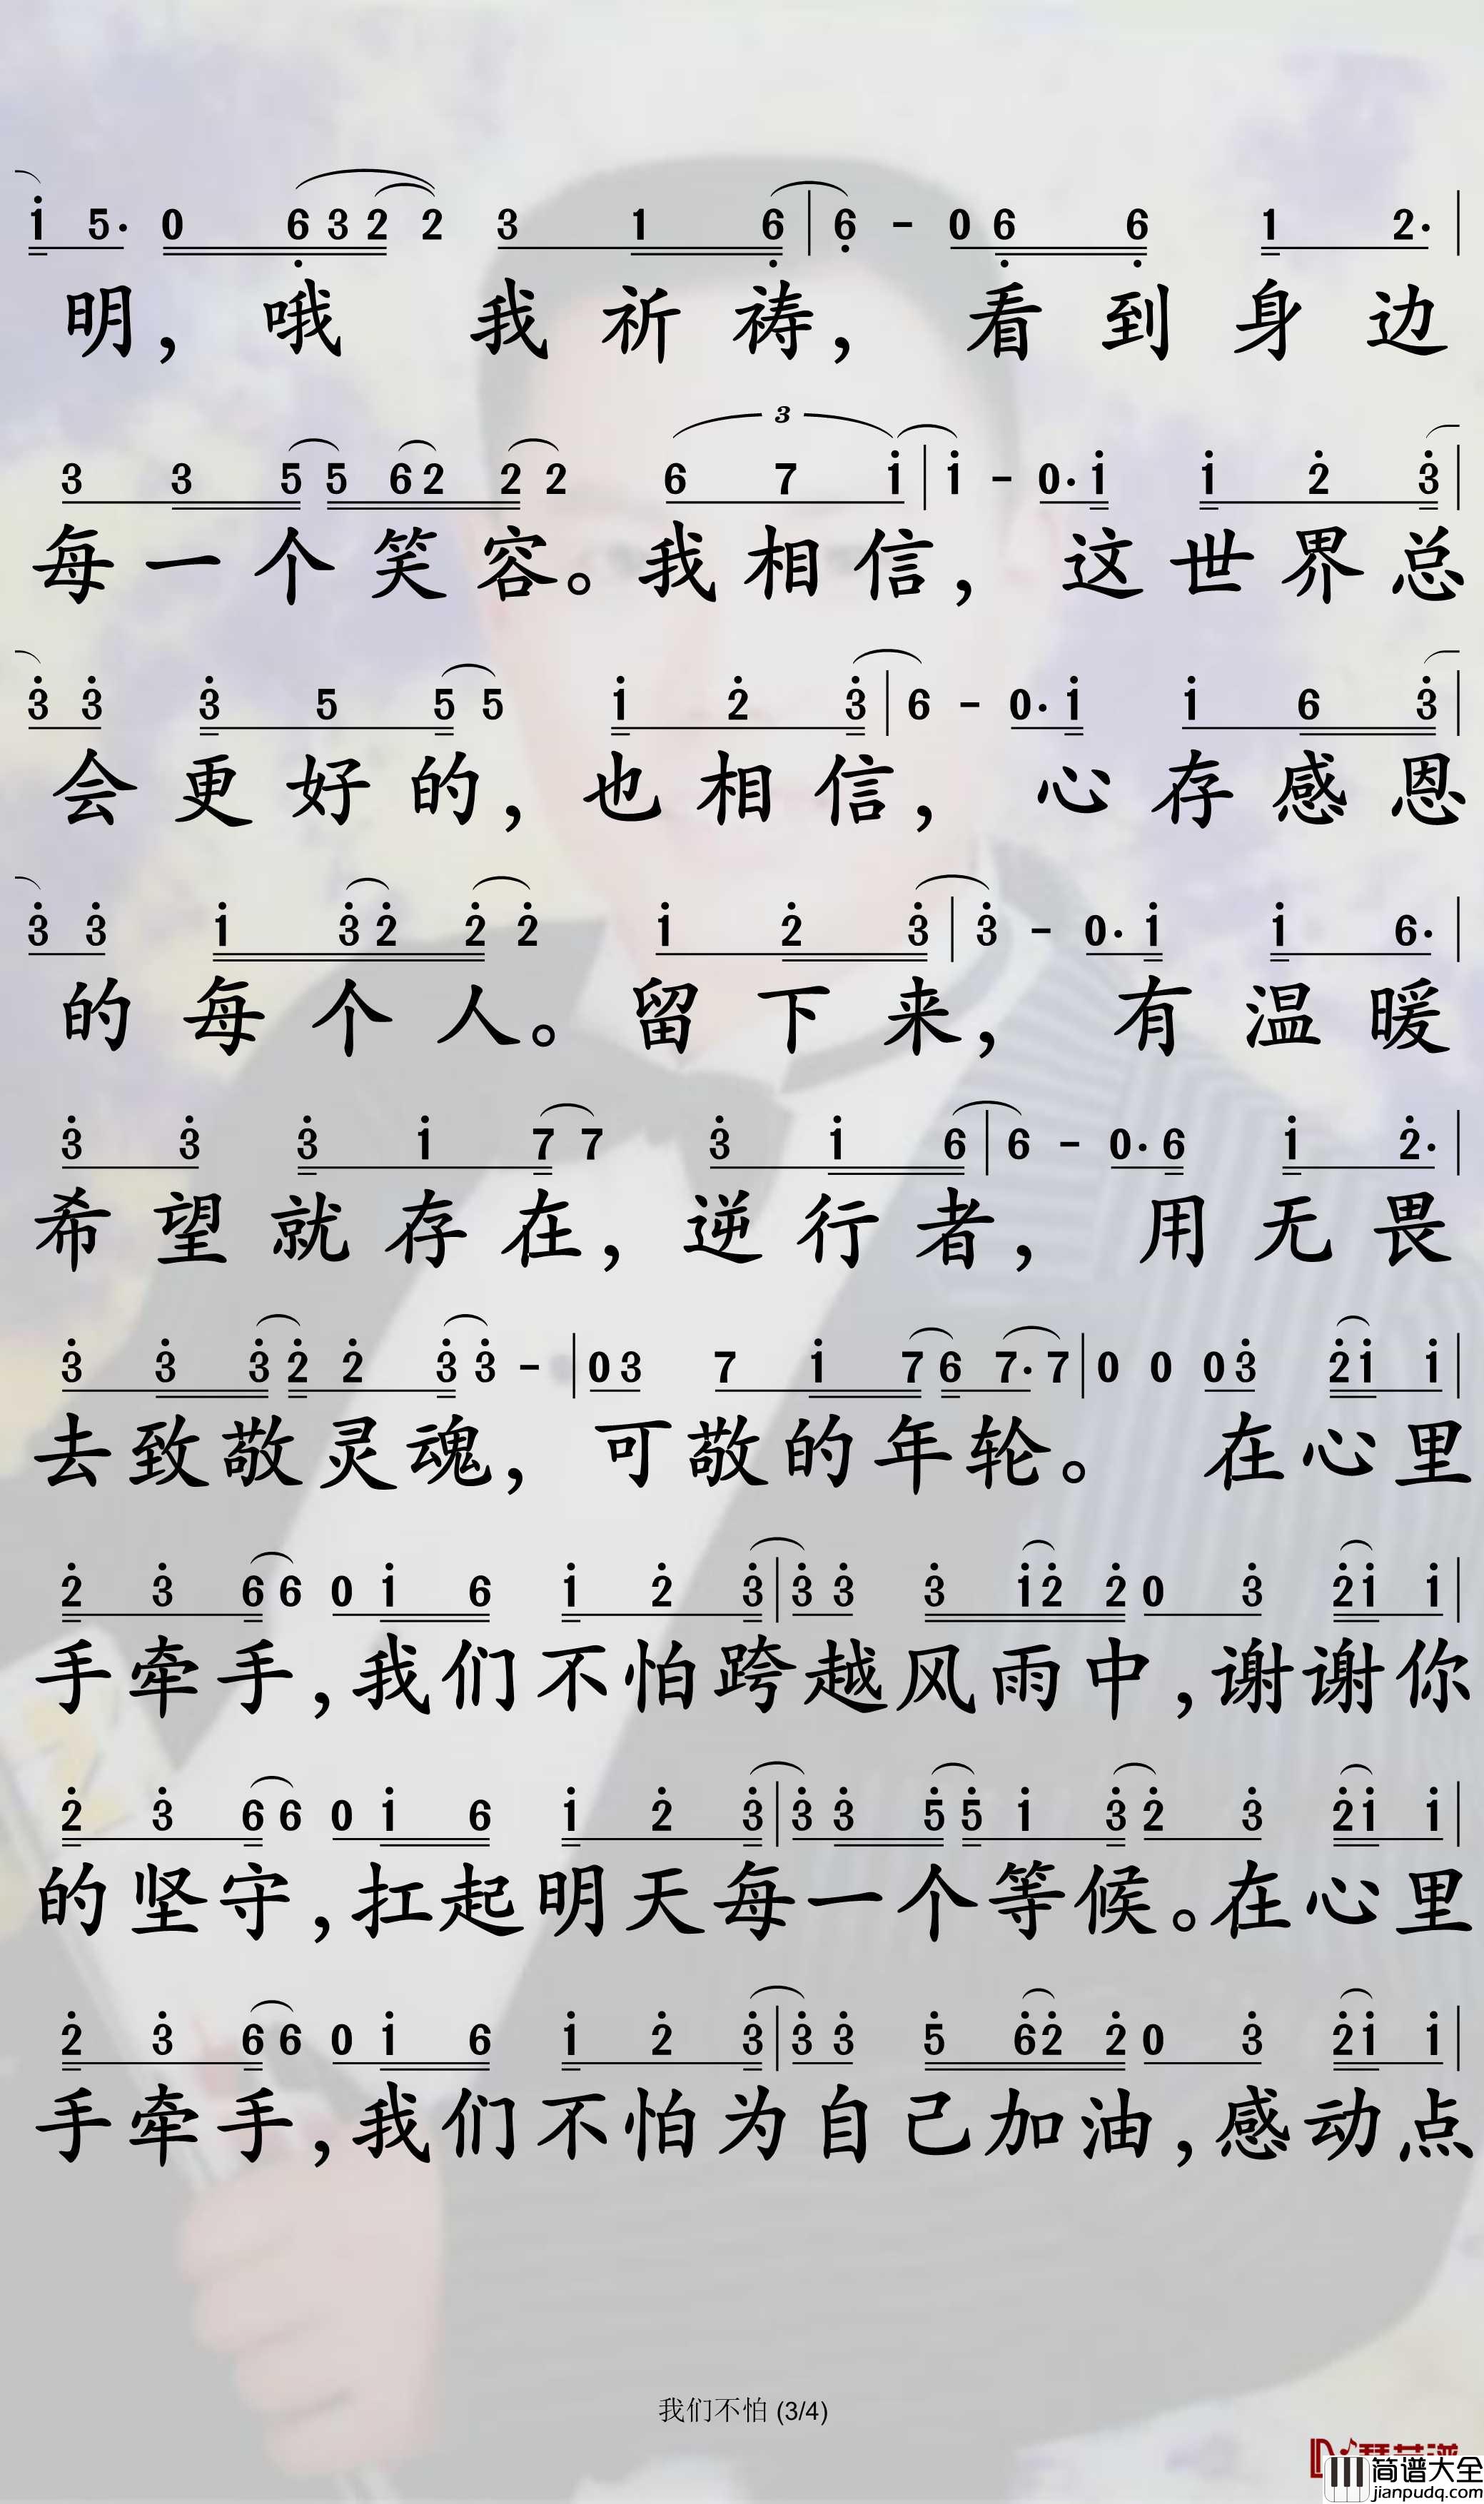 i 5. 0 6 3 2 2 3 1 6 | 6 - 0 6 6 1 2. |
明，哦 我祈祷，看到身边
3
3 3 5 5 6 2 2 2 6 7 i | i - 0. i i 2 3 |
每一个笑容。我相信，这世界总
3 3 3 5 5 5 i 2 3 | 6 - 0. i i 6 3 |
会更好的，也相信，心存感恩
3 3 i 3 2 2 2 i 2 3 | 3 - 0. i i 6. |
的每个人。留下来，有温暖
3 3 3 i 7 7 3 i 6 | 6 - 0. 6 i 2. |
希望就存在，逆行者，用无畏
3 3 3 2 2 3 3 - | 0 3 7 i 7 6 7. 7 | 0 0 0 3 2 i i |
去致敬灵魂，可敬的年轮。在心里
2 3 6 6 0 i 6 i 2 3 | 3 3 3 i 2 2 0 3 2 i i |
手牵手，我们不怕跨越风雨中，谢谢你
2 3 6 6 0 i 6 i 2 3 | 3 3 5 5 i 3 2 3 2 i i |
的坚守，扛起明天每一个等候。在心里
2 3 6 6 0 i 6 i 2 3 | 3 3 5 6 2 2 0 3 2 i i |
手牵手，我们不怕为自己加油，感动点
我们不怕 (3/4)
简谱大全
jianpudq.com